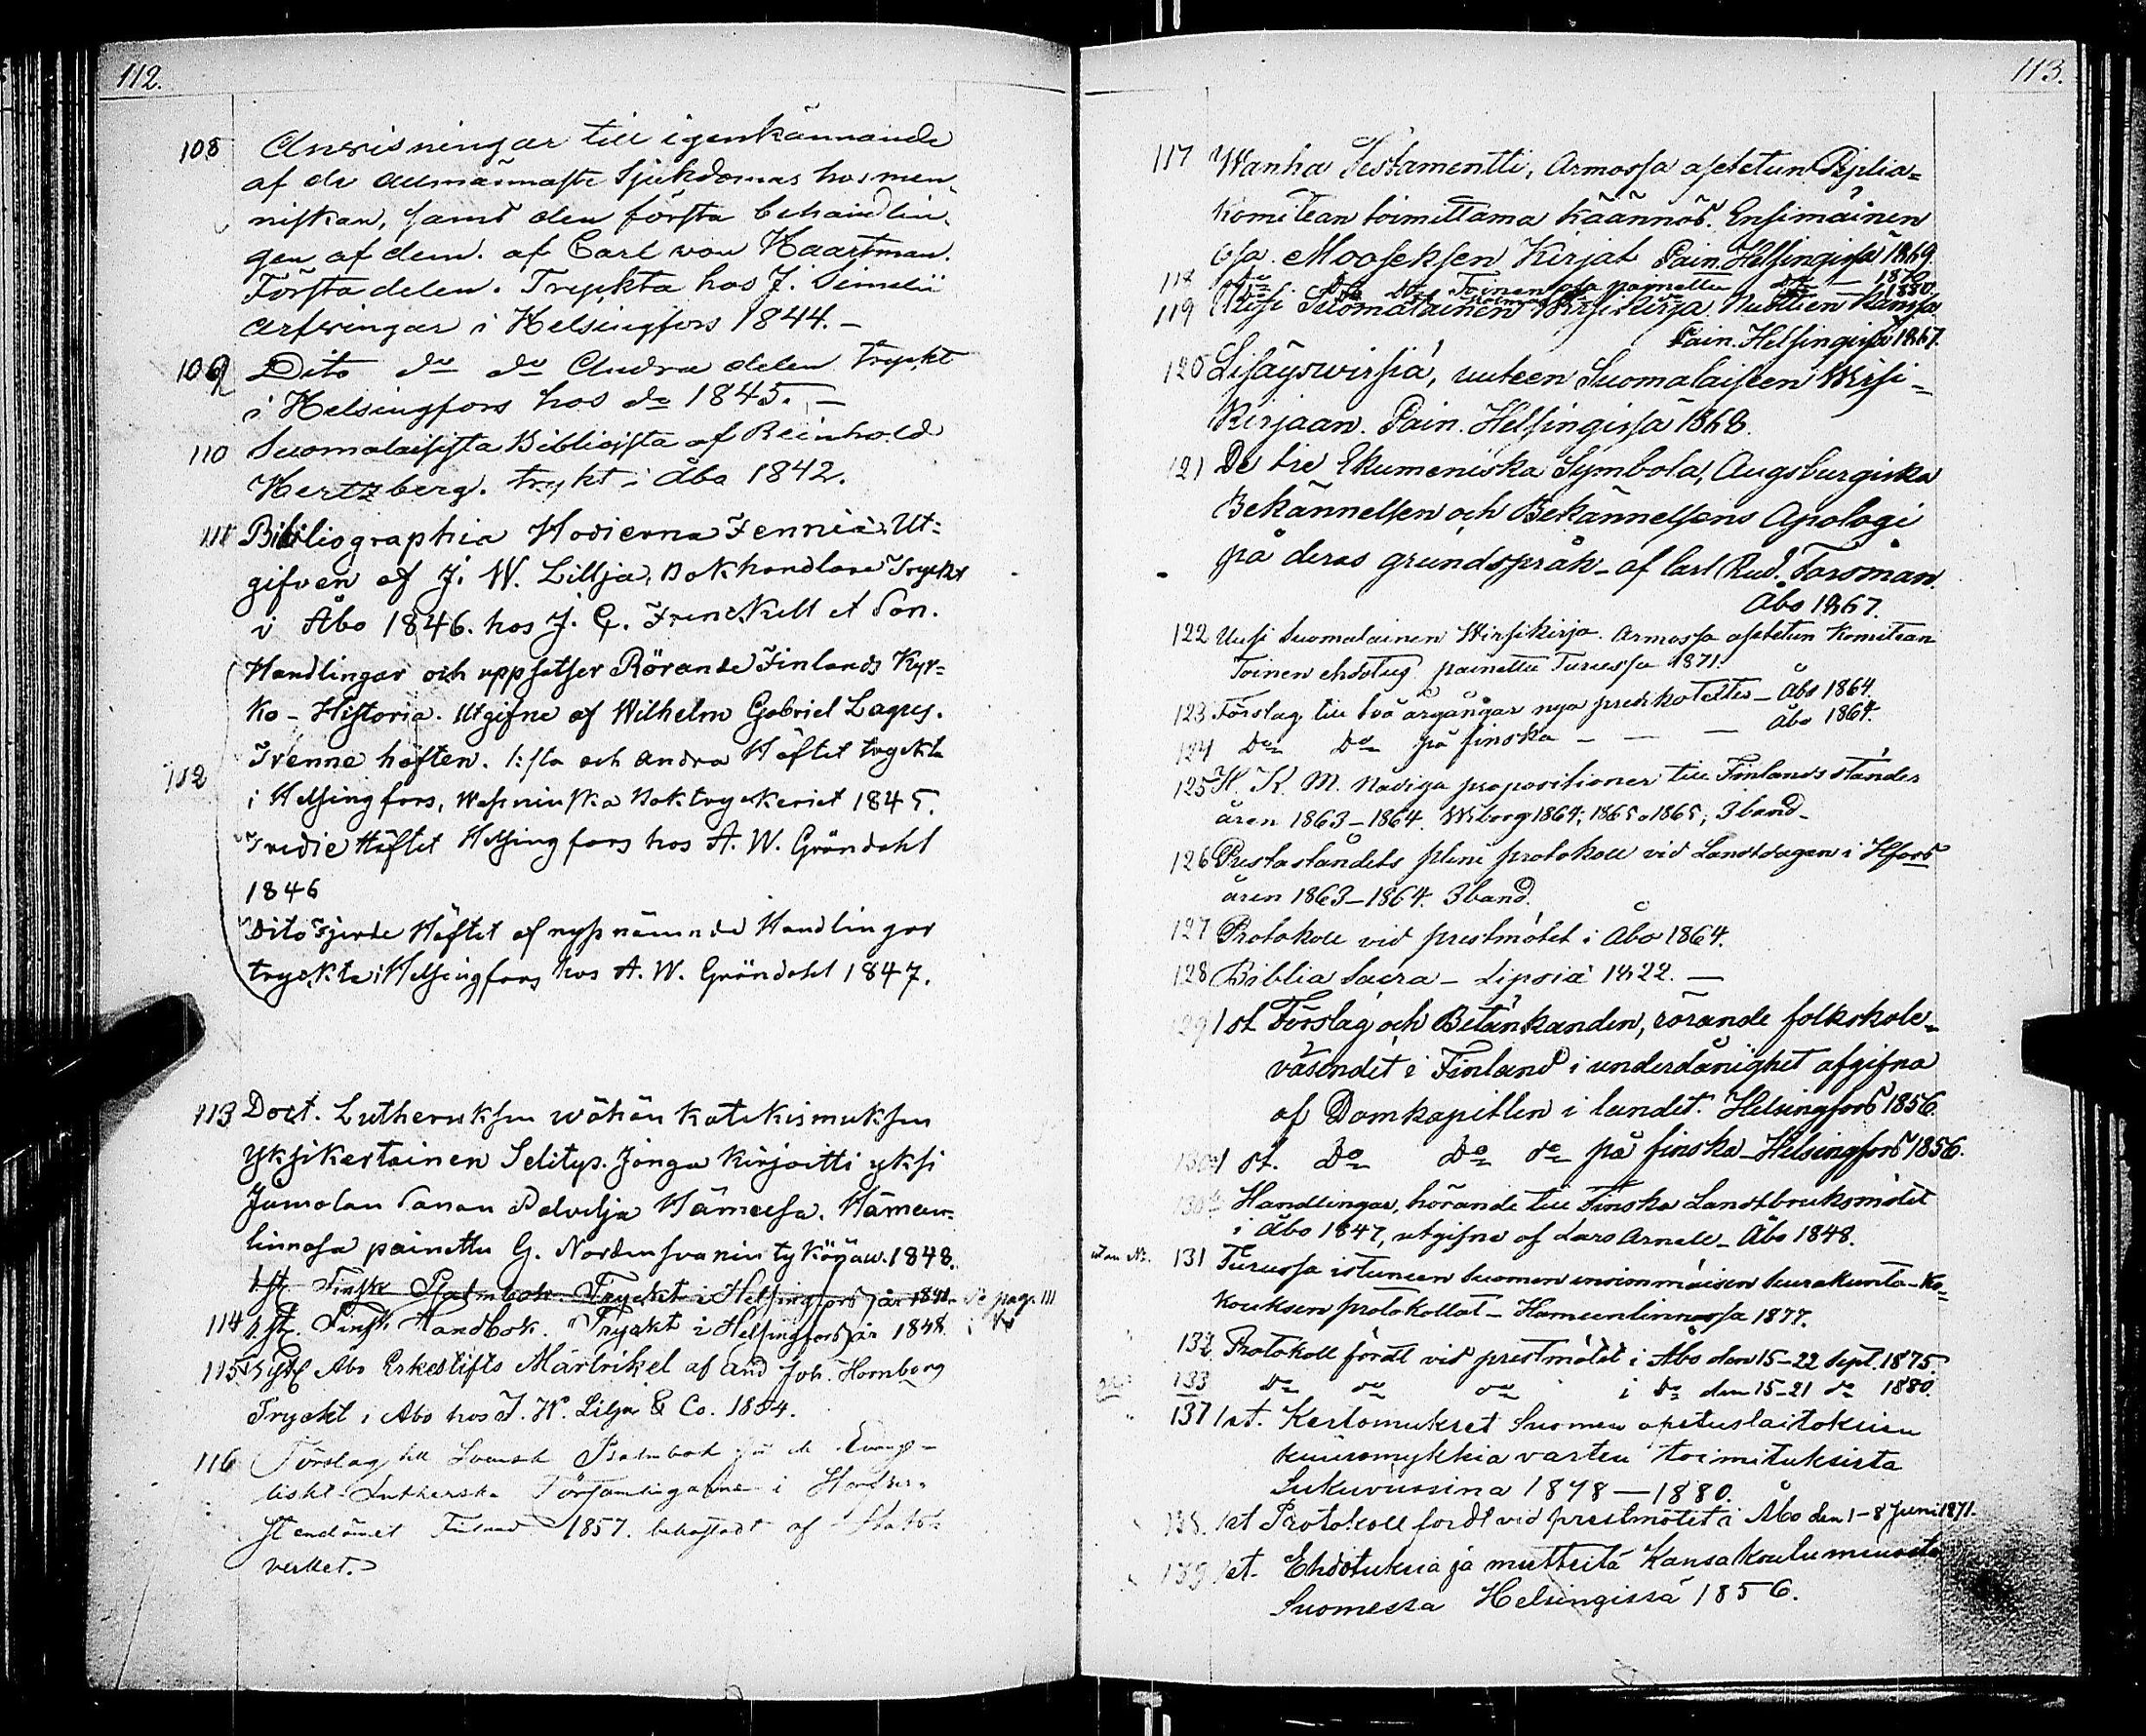 112.
108 Anvisningar till igenkännande
af de allmännaste Sjukdomar hos men-
niskan, samt den första behandlin-
gen af dem. af Carl von Haartman.
Första delen. Tryckta hos J. Simelii
arfvingar i Helsingfors 1844. –
109 Dito do do Andra delen tryckt
i Helsingfors hos do 1845. –
110 Suomalaisista Biblioista af Reinhold
Hertzberg. trykt i Åbo 1842.
111 Bibliographia Hodierna Fennia, Ut-
gifven af J. W. Lillja, Bokhandlare Tryckt
i Åbo 1846. hos J. C. Frenckell et Son.
Handlingar och uppsatser Rörande Finlands Kyr-
ko-Historia. Utgifne af Wilhelm Gabriel Lagus.
Trenne häften. 1:sta och Andra Häftet tryckta
112 i Helsingfors, Wasenius'ska Boktryckeriet 1845.
Tredie Häftet Helsingfors hos A. W. Gröndahl
1846
Dito Fjerde Häftet af nyss nämnde Handlingar
tryckte i Helsingfors hos A. W. Gröndahl 1847.
113 Doct. Lutheruksen wähän Katekismuksen
Yksikertainen Selitys. Jonga kirjoitti yksi
Jumalan Sanan Palvelja Hämeesä. Hämeen-
linnasa painettu G. Nordensvanin tykönäw. 1848.
1 st. Finsk Psalmbok. Tryckt i Helsingfors år 1841. Se pag. 111
114 1 st. Finsk Handbok. Tryckt i Helsingfors år 1848.
115 1 st Åbo Erkestifts Märtrikel af And Joh. Hornborg
Tryckt i Åbo hos J. W. Lilja & Co. 1854.
116 Förslag till Svensk Psalmbok för de Evange-
liskt-Lutherska Församlingarne i Storfur-
stendömet Finland 1857. bekostadt af Stats-
verket.
113.
117 Wanha Testamentti, Armossa asetetun Pyplia-
Komitean toimittama käännös. Ensimäinen
Osa. Mooseksen Kirjat Pain. Helsingissä 1869.
118 Do Do Do Toinen osa painettu do – 1870.
1880.
119 Uusi Suomalainen Wirsikirja. Nuottien Kanssa.
Pain. Helsingissä 1867.
120 Lisäyswirsiä, uuteen Suomalaiseen Wirsi-
Kirjaan. Pain. Helsingissä 1868.
121 De tre Ekumeniska Symbola, Augsburgiska
Bekännelsen och Bekännelsens Apologi
på deras grundspråk – af Carl Rud. Forsman.
Åbo 1867.
122 Uusi Suomalainen Wirsikirja. Armossa asetetun Komitean
Toinen ehdotus painettu Turussa 1871.
123 Förslag till två årgångar nya predikotexter – Åbo 1864.
124 Do Do på finska – – – Åbo 1864.
125 H. K. M. Nådiga propositioner till Finlands ständer
åren 1863–1864. Wiborg 1864, 1865 o 1865, 3 band –
126 Presteståndets pleni protokoll vid Landtdagen i Hfors
åren 1863–1864. 3 band.
127 Protokoll vid prestmötet i Åbo 1864.
128 Biblia Sacra – Lipsiæ 1822. –
129 1 st Förslag och Betänkanden, rörande folkskole-
väsendet i Finland i underdånighet afgifna
af Domkapitlen i landet. Helsingfors 1856.
130 1 st. Do Do do på finska – Helsingfors 1856.
Handlingar, hörande till Finska Landtbruksmötet
i Åbo 1847, utgifne af Lars Arnell – Åbo 1848.
utan No. 131 Turussa istuneen Suomen ensimmäisen Seurakunta-Ko-
kouksen protokollat – Hämeenlinnassa 1877.
132 Protokoll fördt vid prestmötet i Åbo den 15–22 Sept. 1875.
133 Do do do i do den 15–21 do 1880.
137 1 st. Kertomukset Suomen opetuslaitoksien
kuuromykkiä varten toimituksista
Lukuvuosina 1878–1880.
138. 1 st Protokoll fördt vid prestmötet i Åbo den 1–8 Juni 1871.
139 1 st. Ehdotuksia ja mietteitä Kansakoulumuusta
Suomessa Helsingissä 1856.